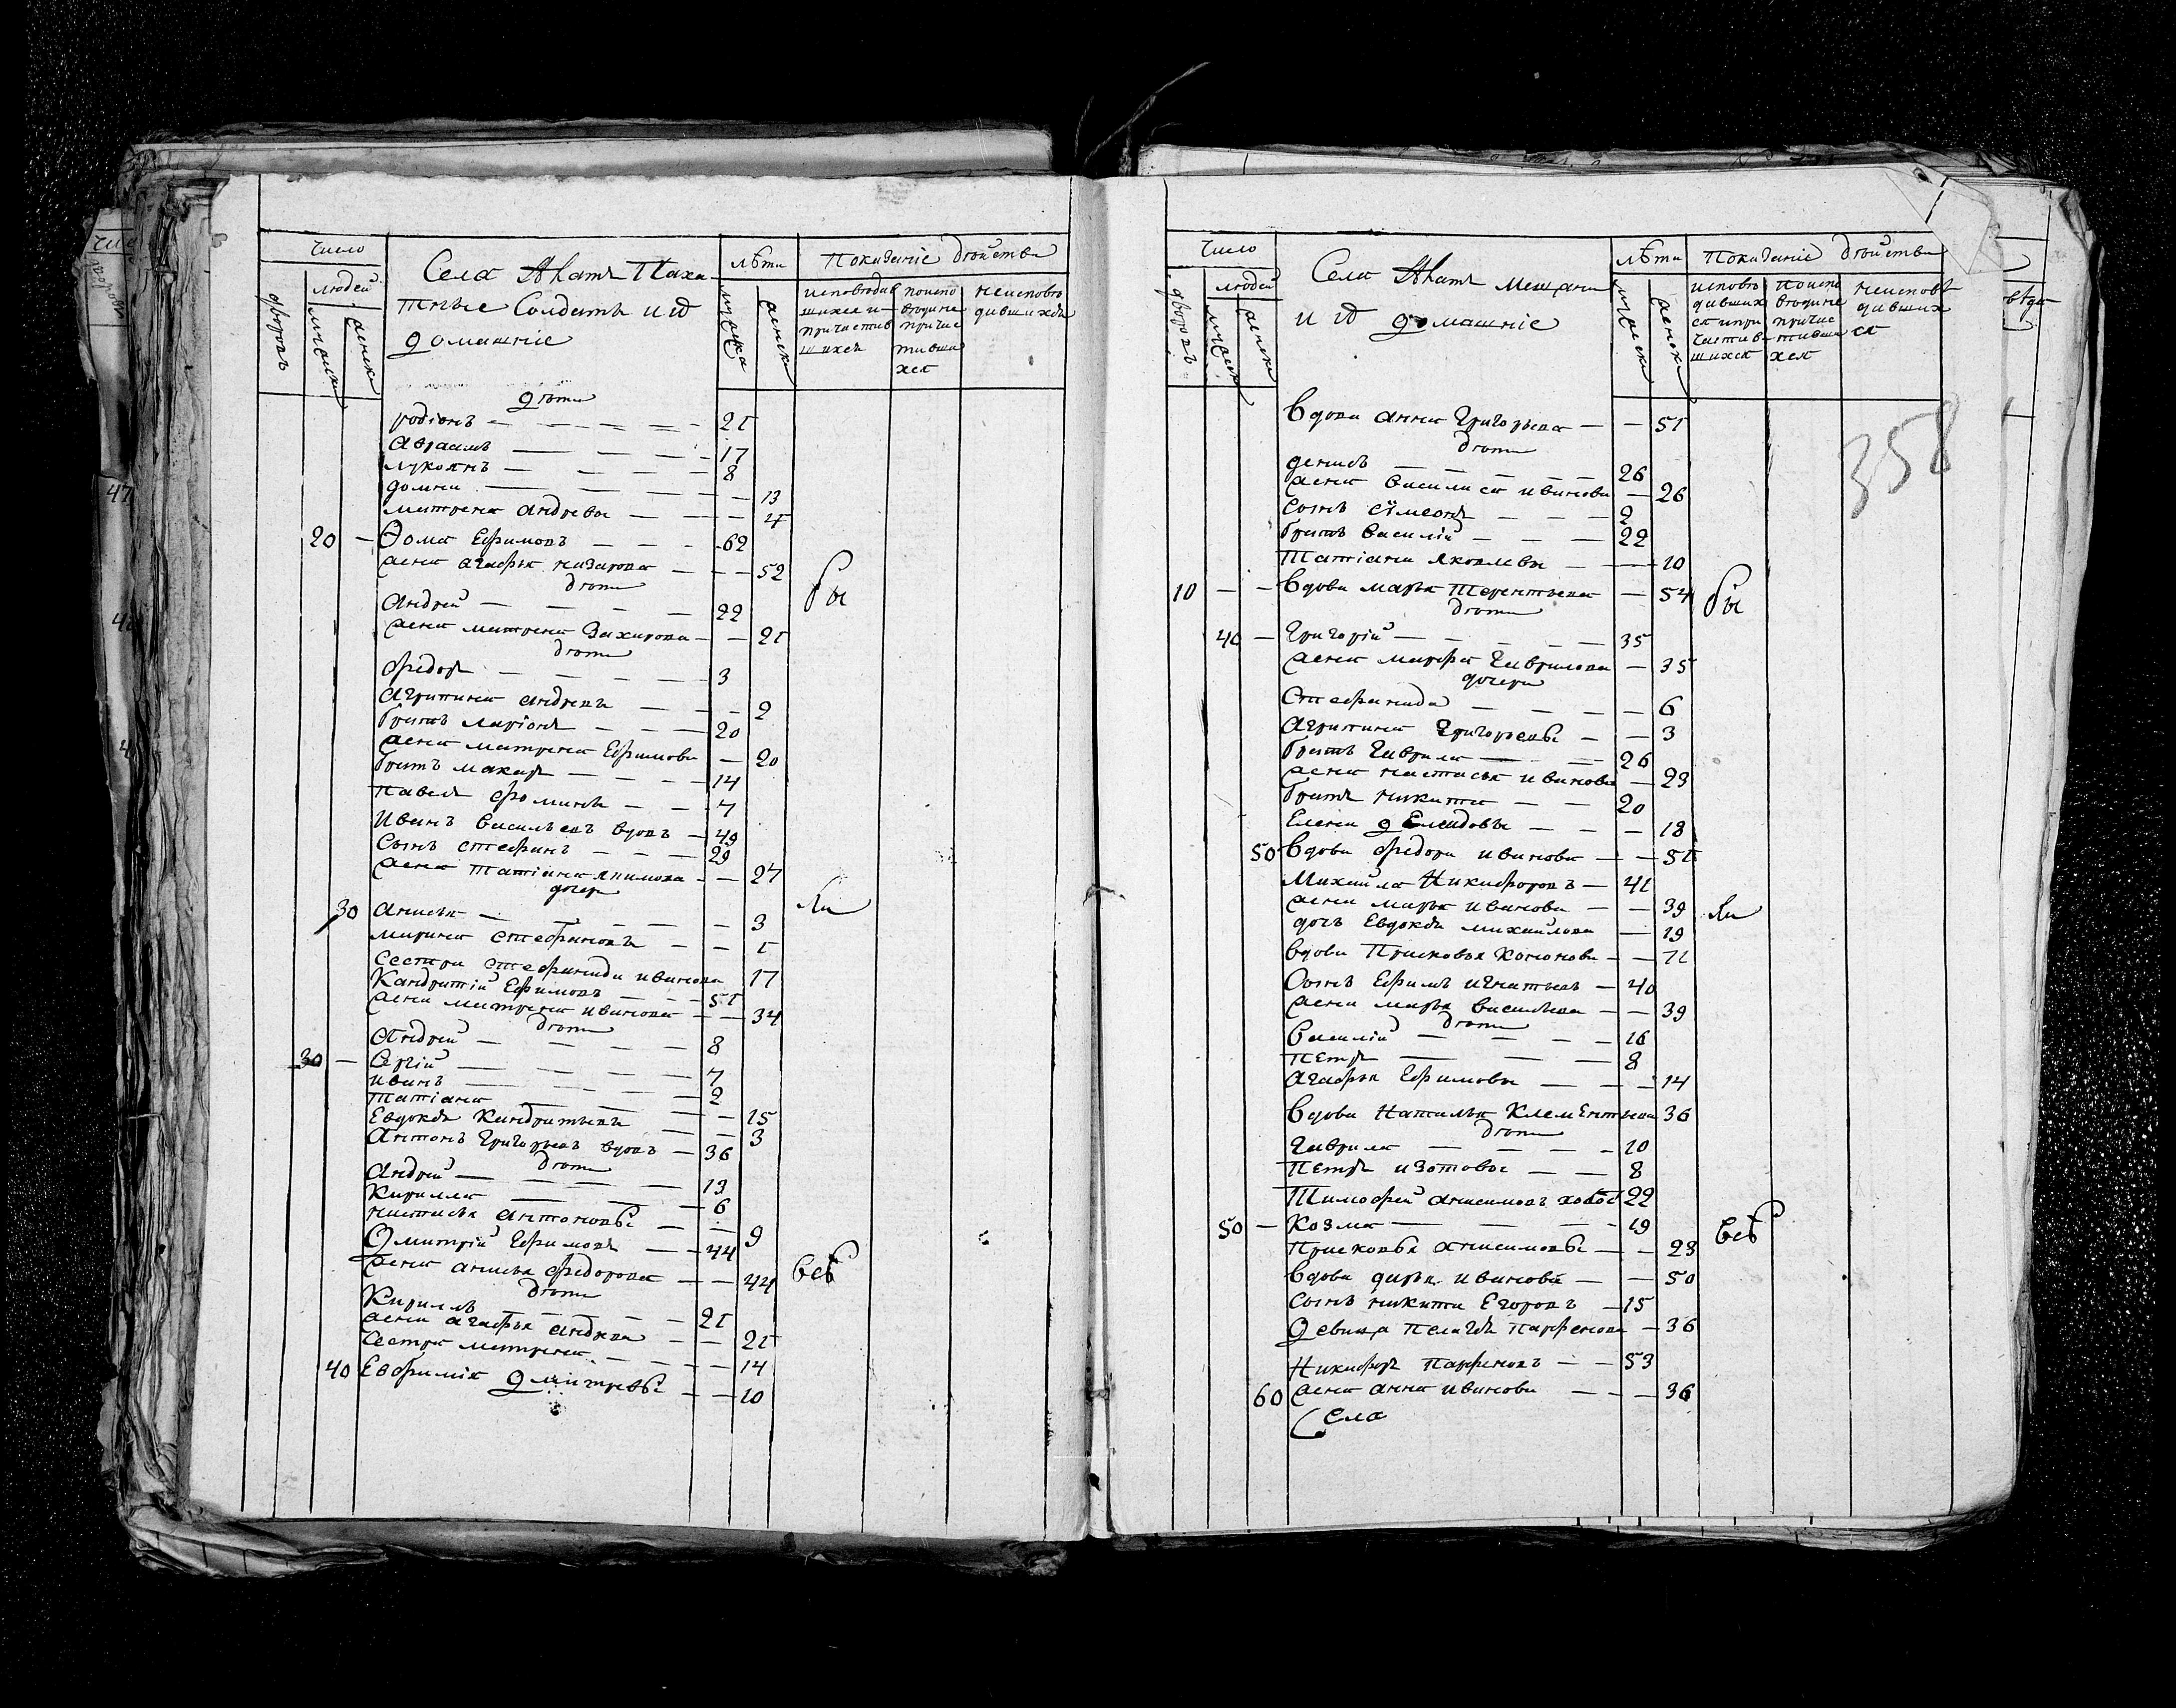 Число
людей
дворовъ
мужска
женска
Села Ахатъ Паха
тные Солдаты и ихъ
домашніе
лѣта
мужска
женска
Показаніе двойства
исповѣдав
шихся и
причастив
шихся
поиспо
вѣдине
причас
тивши
хся
неисповѣ
давшихся
дѣти
родіонъ 21
Авраамъ 17
лукоянъ 8
домна 13
матрена андревы 4
20 Ѳома Ефимовъ 62
жена агафья назарова 52
дѣти
Андрей 22
жена матрена Захарова 21
дѣти
федоръ 3
Агрипина андревы 2
братъ ларіонъ 20
жена матрена Ефимова 20
братъ макаръ 14
павелъ фомины 7
Иванъ васильевъ вдовъ 49
Сынъ стефанъ 29
жена татіана якимова 27
дочери
30 Анисья 3
марина стефановы 1
Сестра стефанида иванова 17
Кандратій Ефимовъ 51
жена матрена иванова 34
дѣти
Андрей 8
30 Сергій 7
иванъ 2
татіана 15
Евдокѣя Кандратьевы 3
Антонъ Григорьевъ вдовъ 36
дѣти
Андрей 13
Кирилла 6
настасья антоновы 9
Дмитрій Ефимовъ 44
жена анисья федорова 44
дѣти
Кириллъ 21
жена агафья андрева 21
Сестра матрена 14
40 Евфимія дмитревы 10
бы
ли
всѣ
Число
людей
дворовъ
мужска
женска
Села Ахатъ мещани
и ихъ домашніе
лѣта
мужска
женска
Показаніе двойства
исповѣ
давших
ся и при
частив
шихся
поиспо
вѣдине
причас
тивши
хся
неисповѣ
давших
ся
358
Вдова анна Григорьева 51
дѣти
денисъ 26
жена василиса иванова 26
Сынъ сімеонъ 2
братъ василій 22
Татіана яковлевы 10
10 Вдова марья терентьева 54
дѣти
40 Григорій 35
жена марфа Гаврилова 35
дочери
Стефанида 6
Агрипина Григорьевы 3
братъ Гаврила 26
жена настасья иванова 23
братъ никита 20
Елена демидовы 18
50 Вдова федора иванова 51
Михайла Никифоровъ 41
жена марья иванова 39
дочь Евдокѣя михайлова 19
вдова Прасковья Кононова 71
Сынъ Ефимъ игнатьевъ 40
жена марья васильева 39
дѣти
василій 16
Петръ 8
Агафья Ефимовы 14
Вдова Наталья Клементьева 36
дѣти
Гаврила 10
Петръ изотовы 8
Тимофей анисимовъ холост 22
50 Козма 19
Прасковья анисимовы 23
Вдова дарья иванова 50
Сынъ никита Егоровъ 15
девица Пелагѣя Парфенова 36
Никифоръ Парфеновъ 53
60 жена анна иванова 36
Села
бы
ли
всѣ